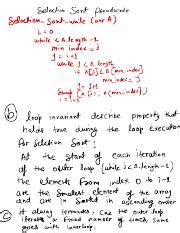 Selection Sort Pseudocode
Selection-Sort-while (arr A)
i = 0
while i < A.length - 1
min index = i
j = i+1
while j < A.length
if A[j] < A[min_index]
min_index = j
Swap A[i] A[min_index]
i = i+1
(b) loop invariant describe property that
holds true during the loop execution
For Selection Sort:
At the start of each iteration
of the outer loop (while i < A.length-1)
The elements from index 0 to i-1
are the smallest element of the array
and are in Sorted in ascending order
(c) It always terminates, Cuz the outer loop
iterates a fixed number of times, Same
goes with innerloop.